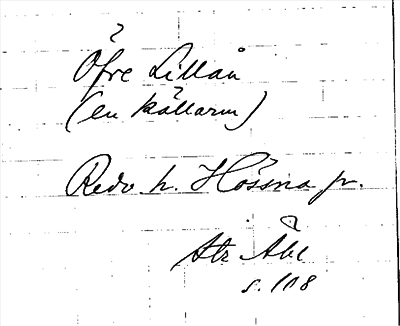 Öfre Lillån
(en källarm)
Redv h. Hössna sn.
Atr Åbl
s. 108